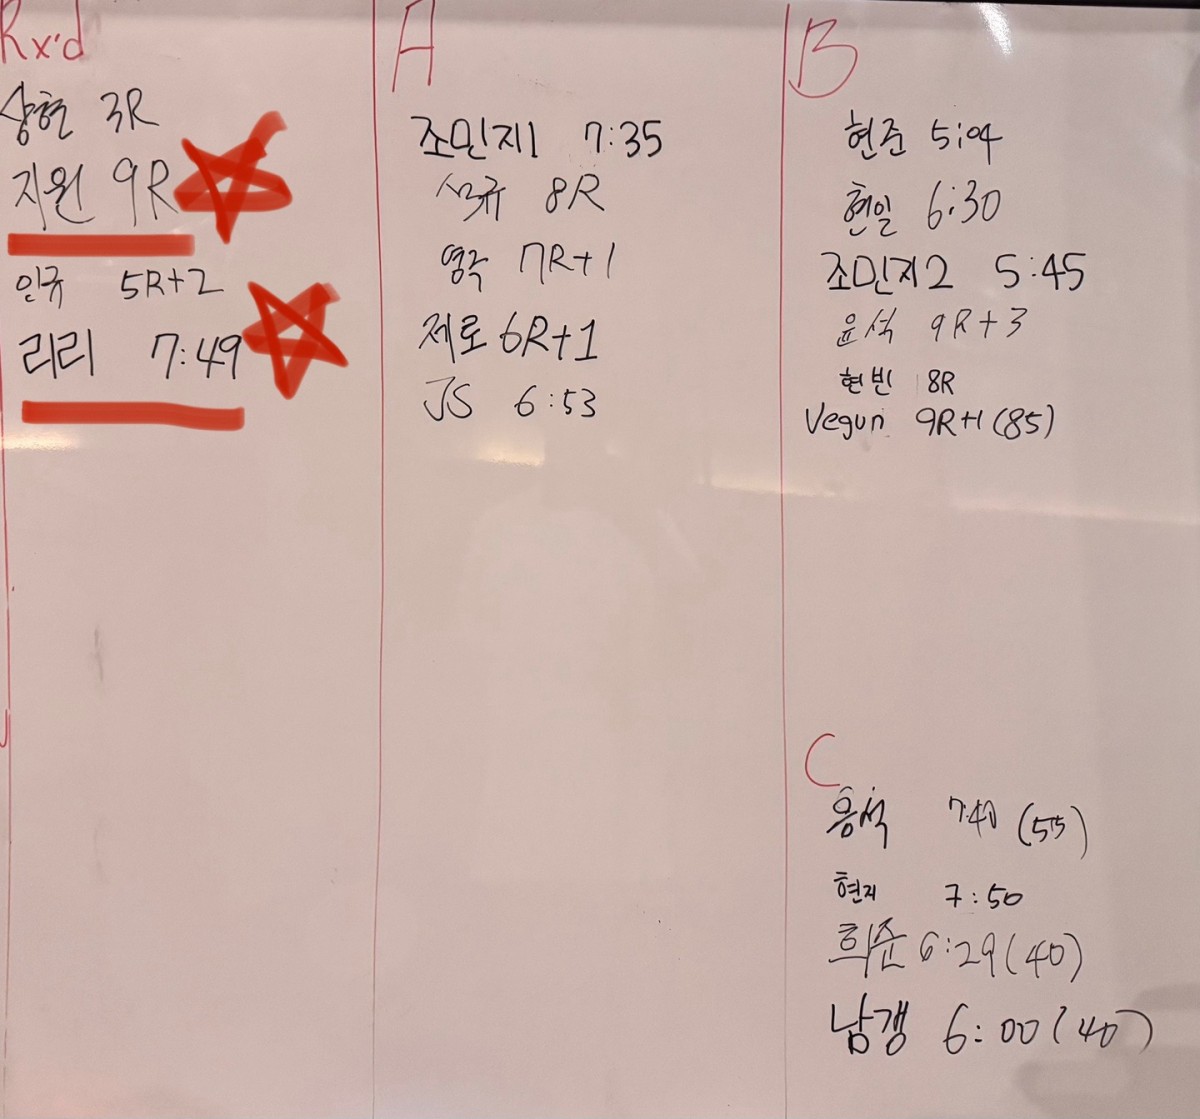 Rx'd
상현 3R
지원 9R
인규 5R+2
리리 7:49
A
조민지1 7:35
석규 8R
영각 7R+1
제로 6R+1
JS 6:53
B
현준 5:04
현일 6:30
조민지2 5:45
윤석 9R+3
현빈 8R
Vegun 9R+1(85)
C
용석 7:40 (55)
현지 7:50
희준 6:29(40)
남갱 6:00(40)